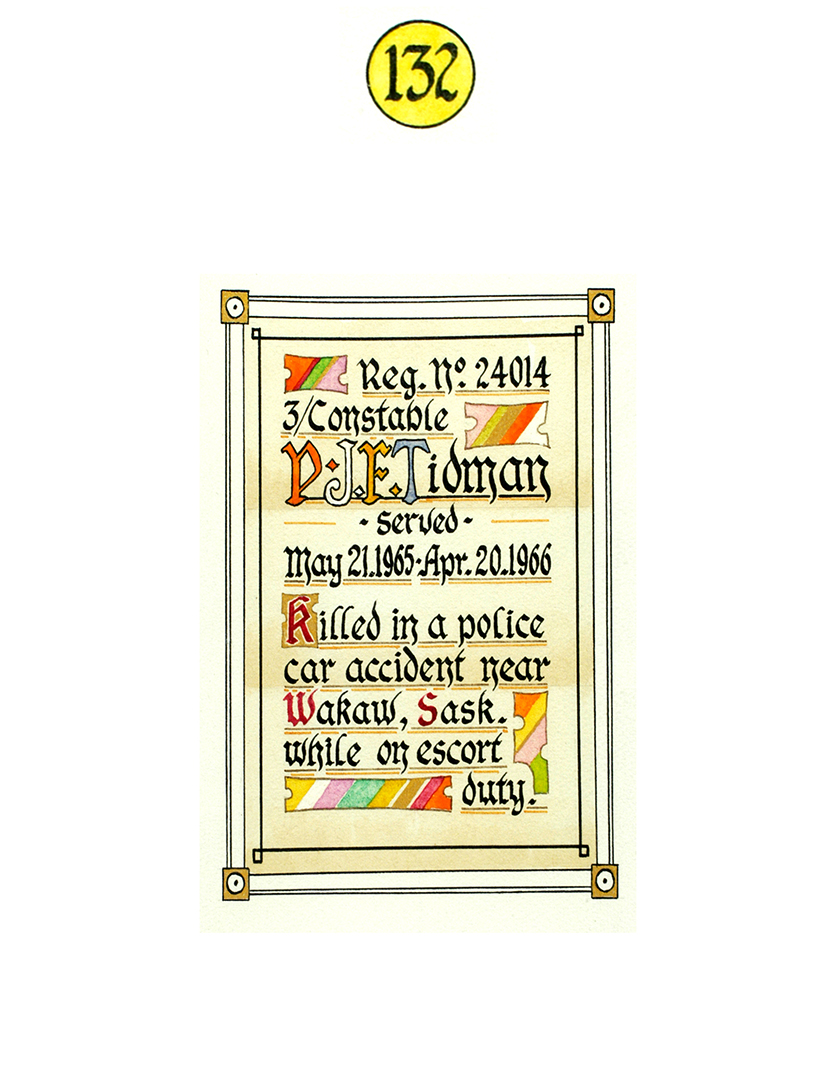 132
Reg. Nº 24014
3/Constable
P.J.F.Tidman
- served -
May 21.1965-Apr. 20.1966
Killed in a police
car accident near
Wakaw, Sask.
while on escort
duty.